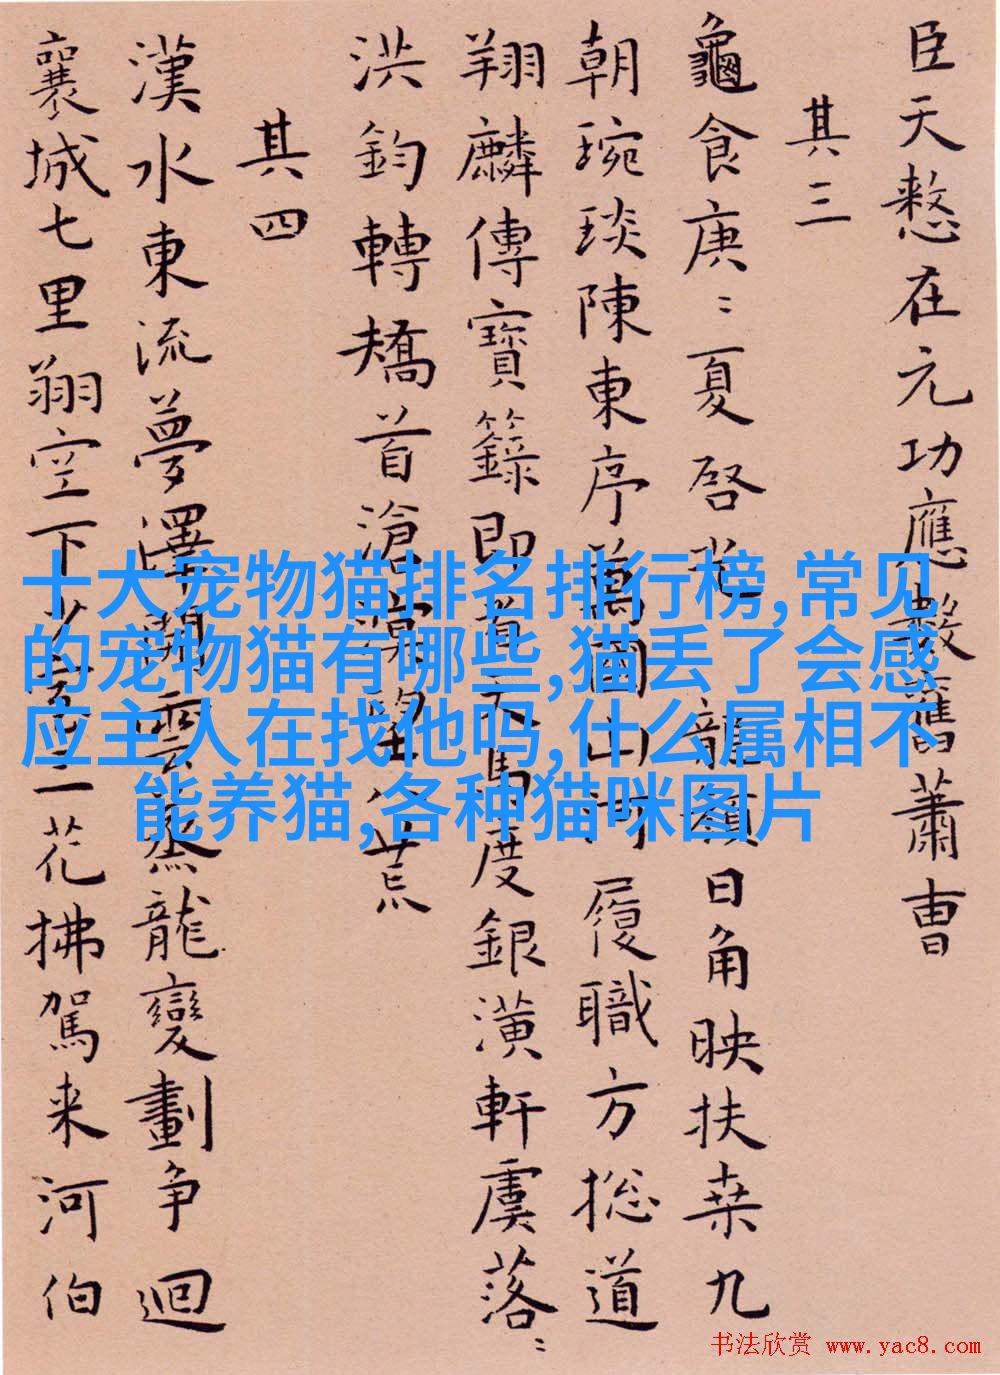 臣天憖在元功應數舊蕭曹
其三
龜食庚〻夏啓龍顏日角映扶桒九
朝琬琰陳東序萬圖山河履職方揔道
翔麟傳寶籙即天馬度銀潢軒虞落〻
洪鈞轉矯首滄八荒
其四
漢水東流夢澤開雲蒸龍變劃争迴
襄城七里翔空下二花拂駕来河伯
十大宠物猫排名排行榜,常见
的宠物猫有哪些,猫丢了会感
应主人在找他吗,什么属相不
能养猫,各种猫咪图片
书法欣赏 www.yac8.com